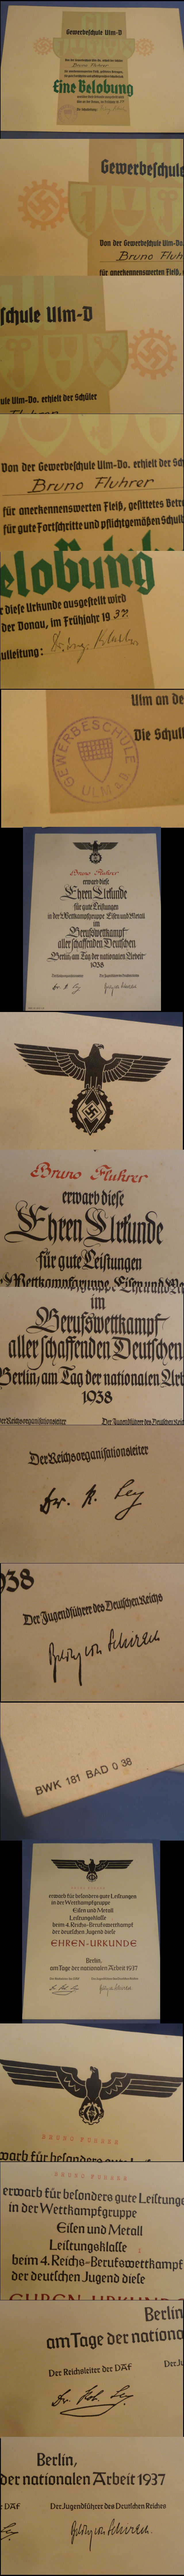 Gewerbeschule Ulm-D
Bruno Fluhrer
Eine Belobung
Gewerbeschul
Von der Gewerbeschule Ulm-Do
Bruno Fluh
für anerkennenswerten Fleiß,
schule Ulm-D
ule Ulm-Do. erhielt der Schüler
Fluhrer
Von der Gewerbeschule Ulm-Do. erhielt der Sch
Bruno Fluhrer
für anerkennenswerten Fleiß, gesittetes Betra
für gute Fortschritte und pflichtgemäßen Schulb
elobung
r diese Urkunde ausgestellt wird
der Donau, im Frühjahr 19
ulleitung:
Ulm an de
Die Schull
GEWERBESCHULE
ULM a. D.
Bruno Fluhrer
erwarb diese
Ehren Urkunde
für gute Leistungen
in der Wettkampfgruppe Eisen und Metall
im
Berufswettkampf
aller schaffenden Deutschen
Berlin, am Tag der nationalen Arbeit
1938
Der Reichsorganisationsleiter
Der Jugendführer des Deutschen Reichs
Dr. R. Ley
Bruno Fluhrer
erwarb diese
Ehren Urkunde
für gute Leistungen
Wettkampfgruppe Eisen und Me
im
Berufswettkampf
aller schaffenden Deutschen
Berlin, am Tag der nationalen Arb
1938
er Reichsorganisationsleiter
Der Jugendführer des Deutschen Reich
Der Reichsorganisationsleiter
Dr. R. Ley
938
Der Jugendführer des Deutschen Reichs
Baldur von Schirach
BWK 181 BAD 0 38
erwarb für besonders gute Leistungen
in der Wettkampfgruppe
Eisen und Metall
Leistungsklasse
beim 4. Reichs-Berufswettkampf
der deutschen Jugend diese
EHREN-URKUNDE
Berlin,
am Tage der nationalen Arbeit 1937
BRUNO FUHRER
warb für besonders gute Leist
BRUNO FUHRER
erwarb für besonders gute Leistunge
in der Wettkampfgruppe
Eisen und Metall
Leistungsklasse 1
beim 4. Reichs-Berufswettkampf
der deutschen Jugend diese
EHREN-URKUNDE
Berlin
am Tage der nationa
Der Reichsleiter der DAF
Der Ju
Dr. Rob. Ley
Berlin,
der nationalen Arbeit 1937
DAF
Der Jugendführer des Deutschen Reiches
Baldur von Schirach